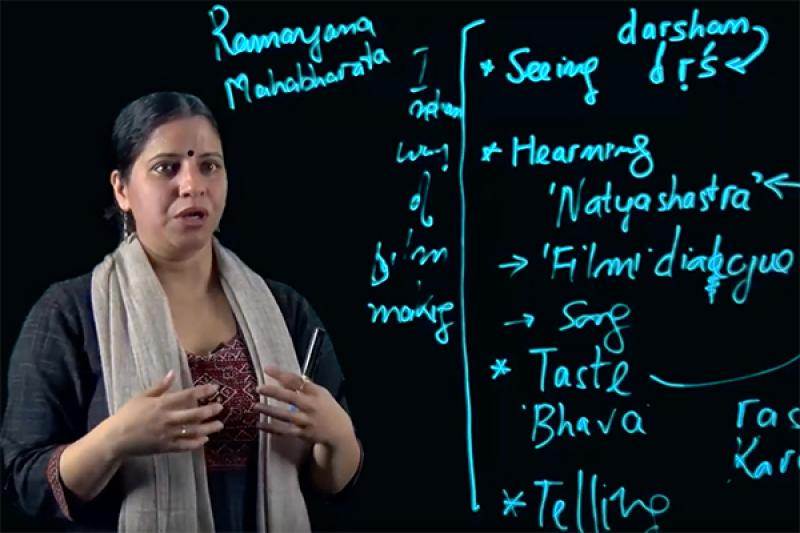 Ramayana
Mahabharata
I
ndian
way
of
film
making
* Seeing
darshan
dṛś
* Hearning
'Natyashastra'
→ 'Filmi dialogue
→ Song
* Taste
'Bhava
ras
Kar
* Telling